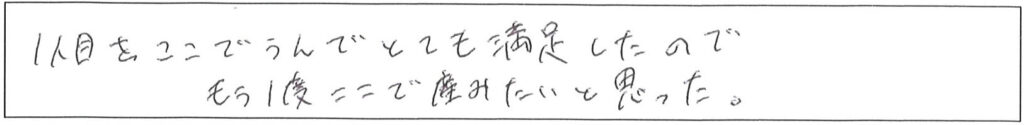 1人目をここでうんでとても満足したので
もう1度ここで産みたいと思った。